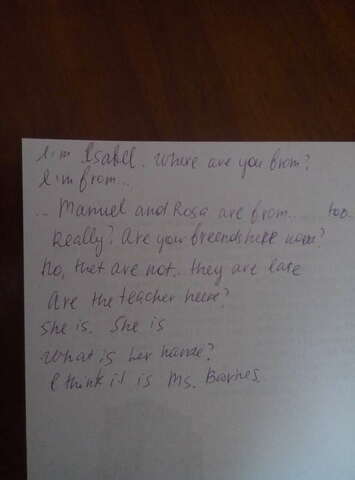 I'm Isabel. Where are you from?
I'm from...
... Manuel and Rosa are from...... too.
Really? Are your freends here now?
No, thet are not... they are late
Are the teacher heere?
She is. She is
What is her name?
I think it is Ms. Barnes.